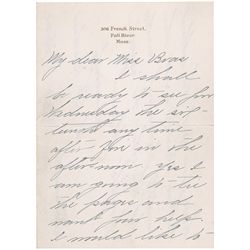 306 French Street,
Fall River
Mass.
My dear Miss
I shall
be ready to see you
Wednesday the six-
any time
after five in the
afternoon yes I
am going to
the and
want your help
I would like to